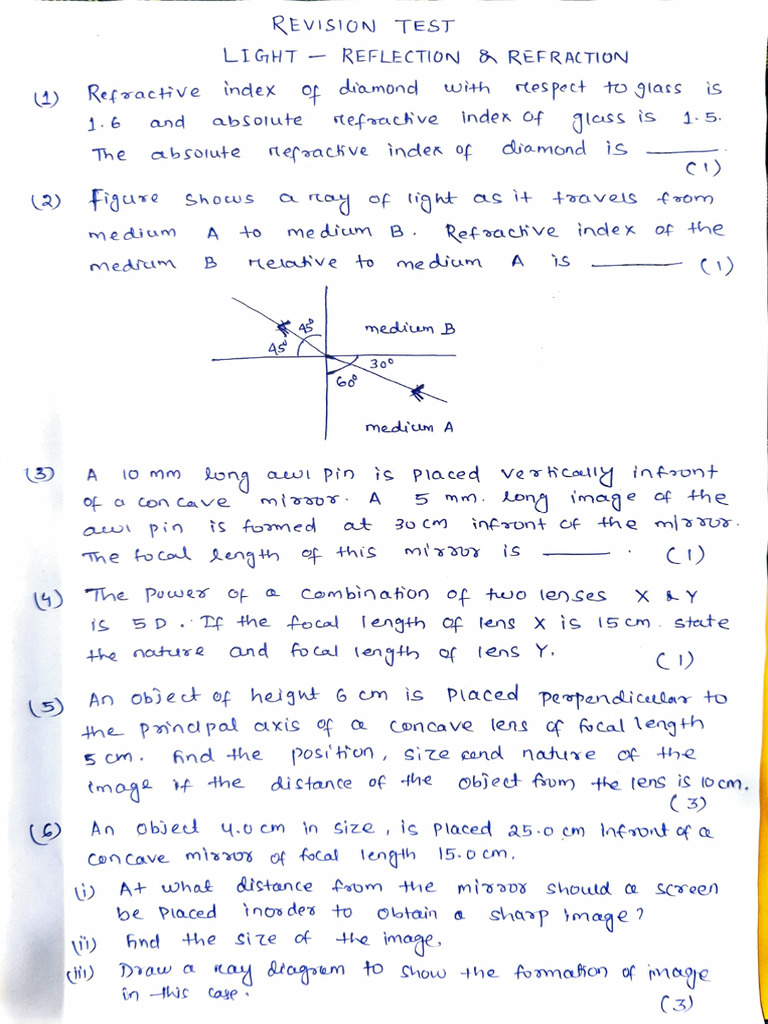 REVISION TEST
LIGHT — REFLECTION & REFRACTION
(1) Refractive index of diamond with respect to glass is
1.6 and absolute refractive index of glass is 1.5.
The absolute refractive index of diamond is ______.
(1)
(2) Figure shows a ray of light as it travels from
medium A to medium B. Refractive index of the
medium B relative to medium A is ______ (1)
45°
medium B
45°
30°
60°
medium A
(3) A 10 mm long awl pin is placed vertically infront
of a concave mirror. A 5 mm. long image of the
awl pin is formed at 30 cm infront of the mirror.
The focal length of this mirror is ______. (1)
(4) The power of a combination of two lenses X & Y
is 5 D. If the focal length of lens X is 15 cm. state
the nature and focal length of lens Y.
(1)
(5) An object of height 6 cm is placed perpendicular to
the principal axis of a concave lens of focal length
5 cm. find the position, size and nature of the
image if the distance of the object from the lens is 10 cm.
(3)
(6) An object 4.0 cm in size, is placed 25.0 cm infront of a
concave mirror of focal length 15.0 cm.
(i) At what distance from the mirror should a screen
be placed inorder to obtain a sharp image?
(ii) find the size of the image.
(iii) Draw a ray diagram to show the formation of image
in this case.
(3)